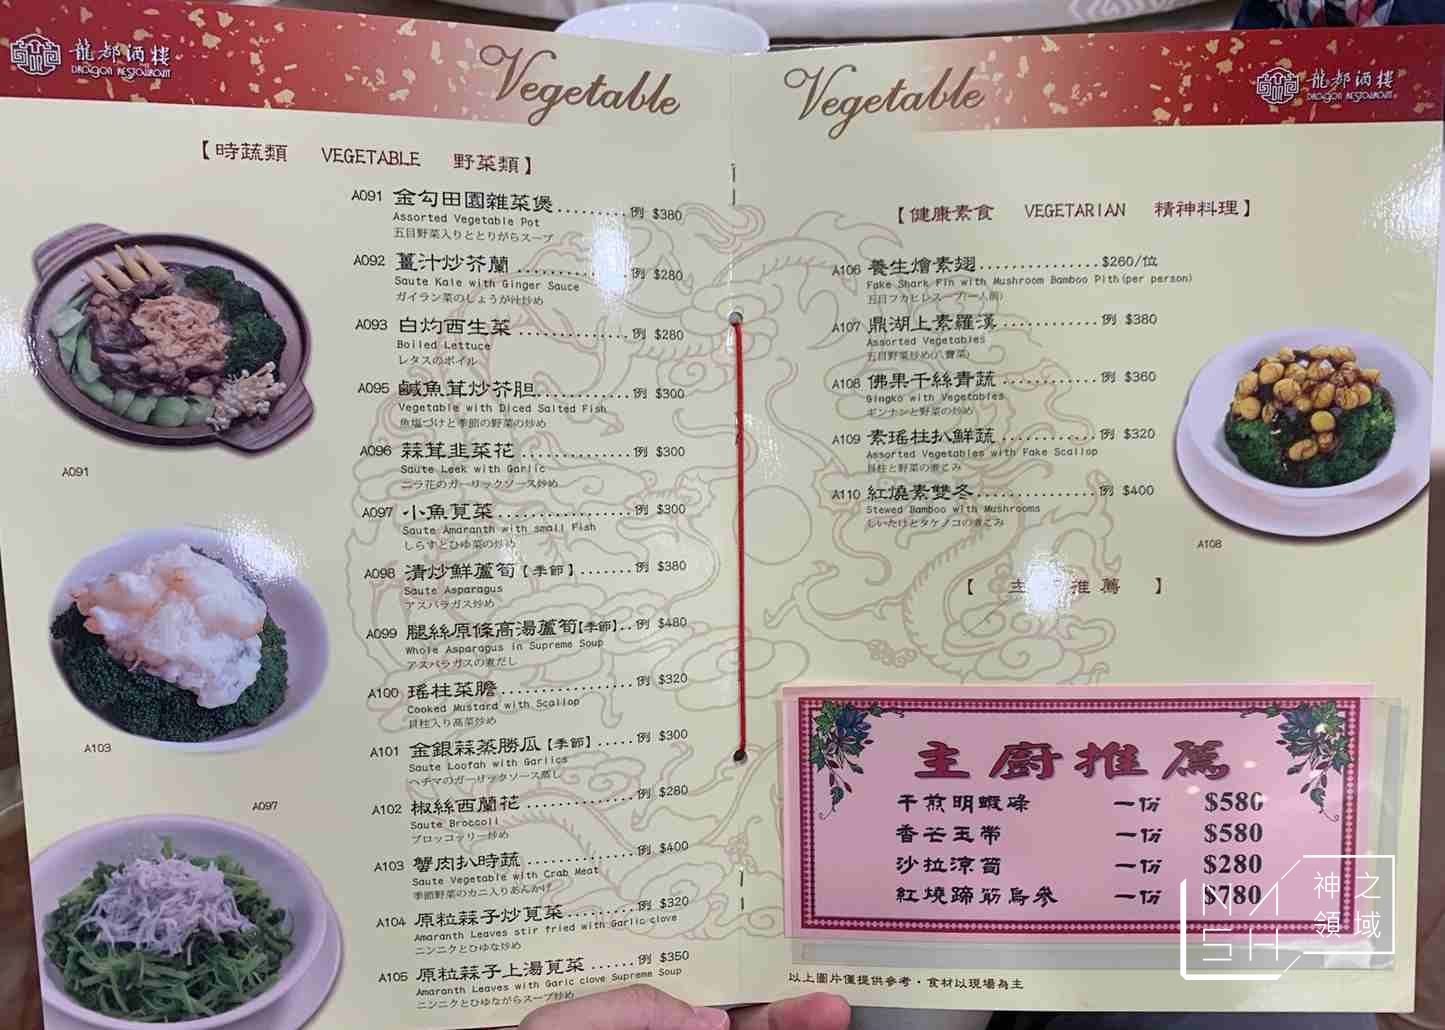 龍都酒樓
DRAGON RESTAURANT
Vegetable
【時蔬類 VEGETABLE 野菜類】
A091 金勾田園雜菜煲.........例 $380
Assorted Vegetable Pot
五目野菜入りととりがらスープ
A092 薑汁炒芥蘭..............例 $280
Saute Kale with Ginger Sauce
ガイラン菜のしょうが汁炒め
A093 白灼西生菜..............例 $280
Boiled Lettuce
レタスのボイル
A095 鹹魚茸炒芥胆............例 $300
Vegetable with Diced Salted Fish
魚塩づけと季節の野菜の炒め
A096 蒜茸韭菜花..............例 $300
Saute Leek with Garlic
ニラ花のガーリックソース炒め
A097 小魚莧菜................例 $300
Saute Amaranth with small Fish
しらすとひゆ菜の炒め
A098 清炒鮮蘆筍【季節】.......例 $380
Saute Asparagus
アスパラガス炒め
A099 腿絲原條高湯蘆筍【季節】..例 $480
Whole Asparagus in Supreme Soup
アスパラガスの煮だし
A100 瑤柱菜膽................例 $320
Cooked Mustard with Scallop
貝柱入り高菜炒め
A101 金銀蒜蒸勝瓜【季節】.....例 $300
Saute Loofah with Garlics
ヘチマのガーリックソース蒸し
A102 椒絲西蘭花..............例 $280
Saute Broccoli
ブロッコラリー炒め
A103 蟹肉扒時蔬..............例 $400
Saute Vegetable with Crab Meat
季節野菜のカニ入りあんかけ
A104 原粒蒜子炒莧菜..........例 $320
Amaranth Leaves stir fried with Garlic clove
ニンニクとひゆな炒め
A105 原粒蒜子上湯莧菜......例 $350
Amaranth Leaves with Garic clove Supreme Soup
ニンニクとひゆながらスープ炒め
A091
A103
A097
Vegetable
龍都酒樓
DRAGON RESTAURANT
【健康素食 VEGETARIAN 精神料理】
A106 養生燴素翅...............$260/位
Fake Shark Fin with Mushroom Bamboo Pith(per person)
五目フカヒレスープ(一人前)
A107 鼎湖上素羅漢............例 $380
Assorted Vegetables
五目野菜炒め(八寶菜)
A108 佛果千絲青蔬............例 $360
Gingko with Vegetables
ギンナンと野菜の炒め
A109 素瑤柱扒鮮蔬............例 $320
Assorted Vegetables with Fake Scallop
貝柱と野菜の煮こみ
A110 紅燒素雙冬..............例 $400
Stewed Bamboo with Mushrooms
しいたけとタケノコの煮こみ
A108
【 主 推薦 】
主廚推薦
干煎明蝦碌 一份 $580
香芒玉帶 一份 $580
沙拉涼筍 一份 $280
紅燒蹄筋烏參 一份 $780
以上圖片僅提供參考・食材以現場為主
NM
SH
神之
領域